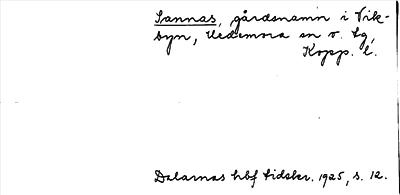 Sannas, gårdsnamn i Vik-
byn, Hedemora sn v. tg,
Kopp. l.
Dalarnas hbf tidskr. 1925, s. 12.